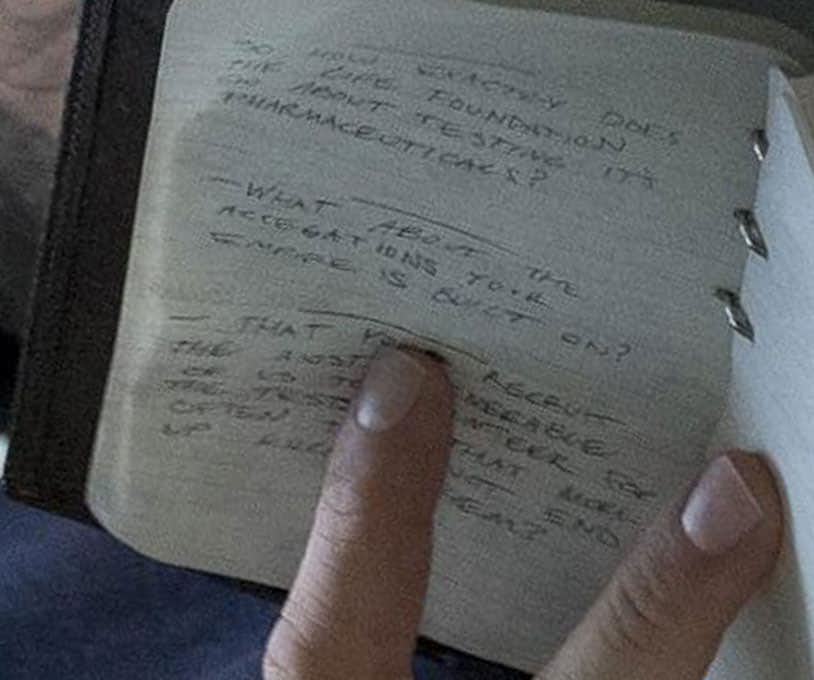 SO HOW EXACTLY DOES
THE LIFE FOUNDATION
GO ABOUT TESTING IT'S
PHARMACEUTICALS?
- WHAT ABOUT THE
ACCEGATIONS YOUR
EMPIRE IS BUILT ON?
- THAT YOU RECRUIT
THE MOST VULNERABLE
OF US TO VOLUNTEER FOR
THE TESTS THAT MORE
OFTEN NOT END
UP